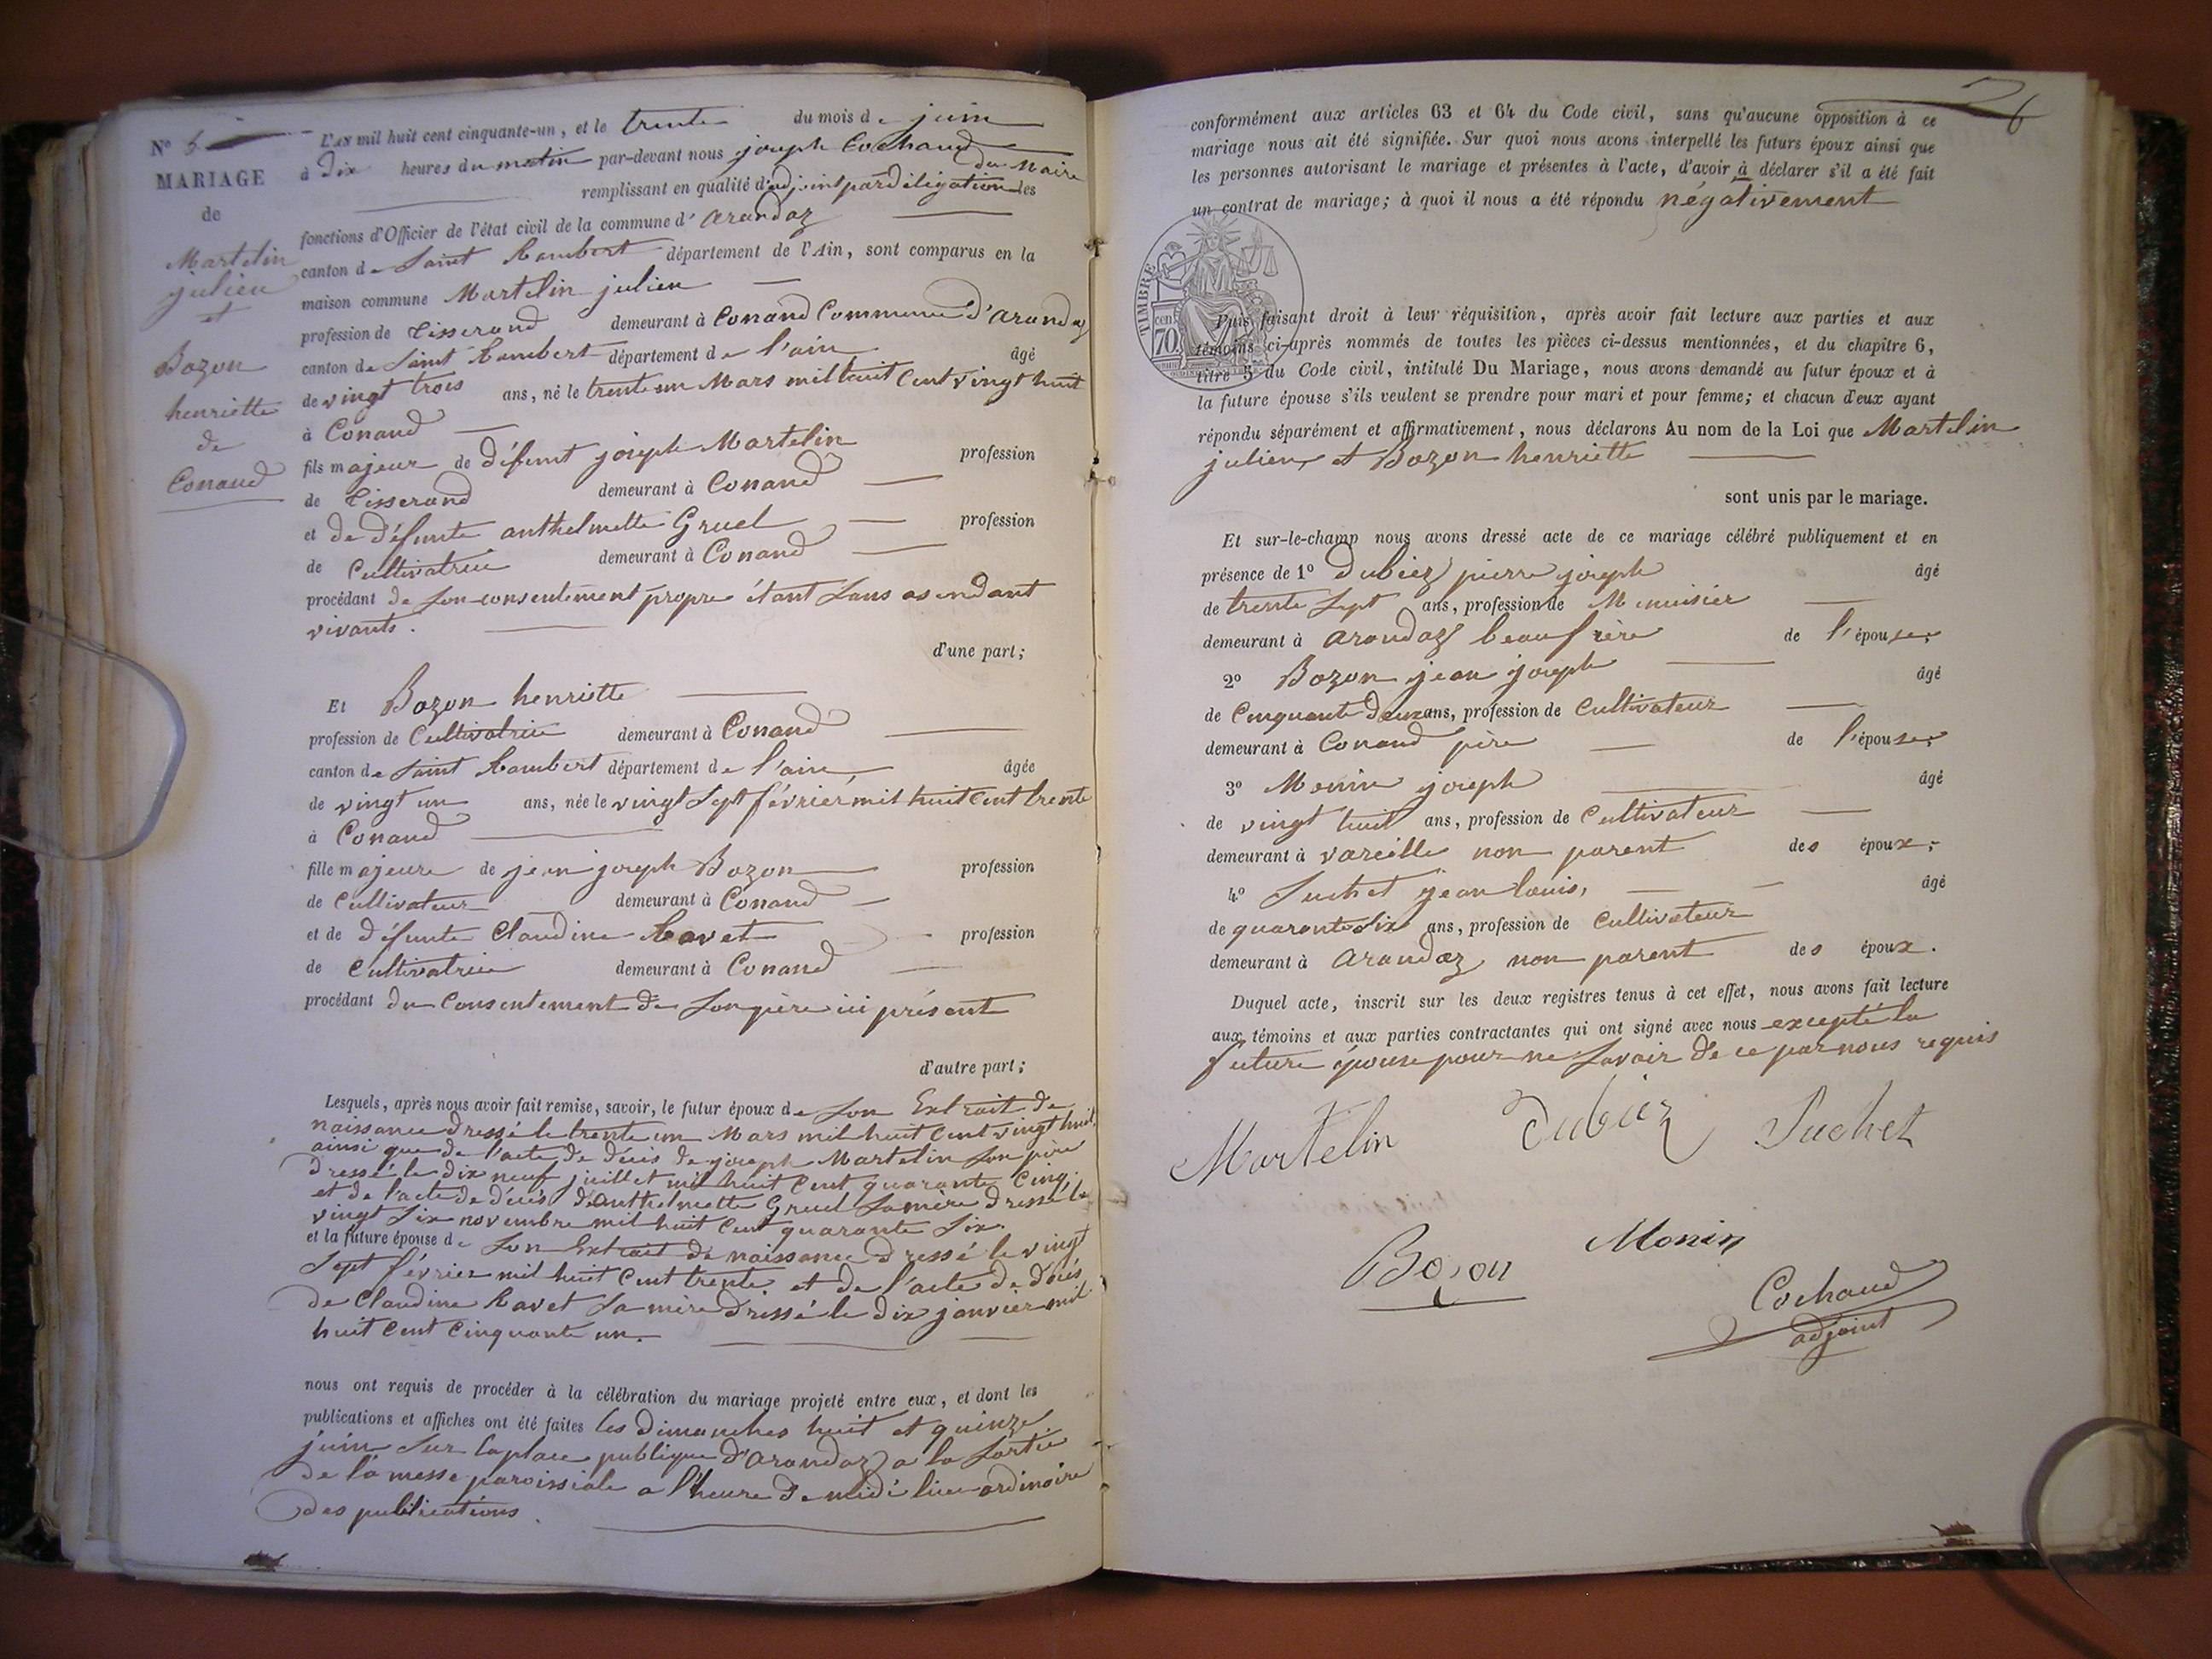 N° 5
MARIAGE
de
Martelin
julien
et
Bozon
henriette
de
Conand
L'AN mil huit cent cinquante-un, et le trente du mois de juin
à dix heures du matin par-devant nous joseph Cochaud
remplissant en qualité d'adjoint par déligation du Maire les
fonctions d'Officier de l'état civil de la commune d'arandaz
canton de Saint Rambert département de l'Ain, sont comparus en la
maison commune Martelin julien
profession de Tisserand demeurant à Conand Commune d'arandaz
canton de Saint Rambert département de l'ain âgé
de vingt trois ans, né le trente un Mars mil huit Cent vingt huit
à Conand
fils majeur de défunt joseph Martelin profession
de Tisserand demeurant à Conand
et de défunte anthelmette Gruel profession
de Cultivatrice demeurant à Conand
procédant de son consentement propre étant sans asendant
vivants.
d'une part;
Et Bozon henriette
profession de Cultivatrice demeurant à Conand
canton de Saint Rambert département de l'ain, âgée
de vingt un ans, née le vingt Sept février mil huit Cent trente
à Conand
fille majeure de jean joseph Bozon profession
de Cultivateur demeurant à Conand
et de défunte Claudine Ravet profession
de Cultivatrice demeurant à Conand
procédant du Consentement de Son père ici présent
d'autre part;
Lesquels, après nous avoir fait remise, savoir, le futur époux de Son Extrait de
naissance dressé le trente un Mars mil huit Cent vingt huit,
ainsi que de l'acte de décis de joseph Martelin Son père
dressé le dix neuf juillet mil huit Cent quarante Cinq.
et de l'acte de décis d'anthelmette Gruel Sa mère dressé le
vingt Six novembre mil huit Cent quarante Six.
et la future épouse de Son Extrait de naissance dressé le vingt
Sept février mil huit Cent trente et de l'acte de décis
de Claudine Ravet Sa mère dressé le dix janvier mil
huit Cent Cinquante un.
nous ont requis de procéder à la célébration du mariage projeté entre eux, et dont les
publications et affiches ont été faites les dimanches huit et quinze
juin Sur la place publique d'arandaz a la Sortie
de la messe paroissiale a l'heure de midi lieu ordinaire
des publications.
conformément aux articles 63 et 64 du Code civil, sans qu'aucune opposition à ce
mariage nous ait été signifiée. Sur quoi nous avons interpellé les futurs époux ainsi que
les personnes autorisant le mariage et présentes à l'acte, d'avoir à déclarer s'il a été fait
un contrat de mariage; à quoi il nous a été répondu négativement
TIMBRE
cen
70
Puis faisant droit à leur réquisition, après avoir fait lecture aux parties et aux
témoins ci-après nommés de toutes les pièces ci-dessus mentionnées, et du chapitre 6,
titre 5 du Code civil, intitulé Du Mariage, nous avons demandé au futur époux et à
la future épouse s'ils veulent se prendre pour mari et pour femme; et chacun d'eux ayant
répondu séparément et affirmativement, nous déclarons Au nom de la Loi que Martelin
julien, et Bozon henriette
sont unis par le mariage.
Et sur-le-champ nous avons dressé acte de ce mariage célébré publiquement et en
présence de 1° Dubiez pierre joseph âgé
de trente Sept ans, profession de Menuisier
demeurant à arandaz beaufrère de l'épouse;
2° Bozon jean joseph âgé
de Cinquante deux ans, profession de Cultivateur
demeurant à Conand père de l'épouse;
3° Monin joseph âgé
de vingt huit ans, profession de Cultivateur
demeurant à vareille non parent des époux;
4° Suchet jean louis, âgé
de quarante Six ans, profession de Cultivateur
demeurant à arandaz non parent des époux.
Duquel acte, inscrit sur les deux registres tenus à cet effet, nous avons fait lecture
aux témoins et aux parties contractantes qui ont signé avec nous excepté la
future épouse pour ne Savoir de ce par nous requis
Martelin Dubiez Suchet
Bozon Monin
Cochaud
adjoint